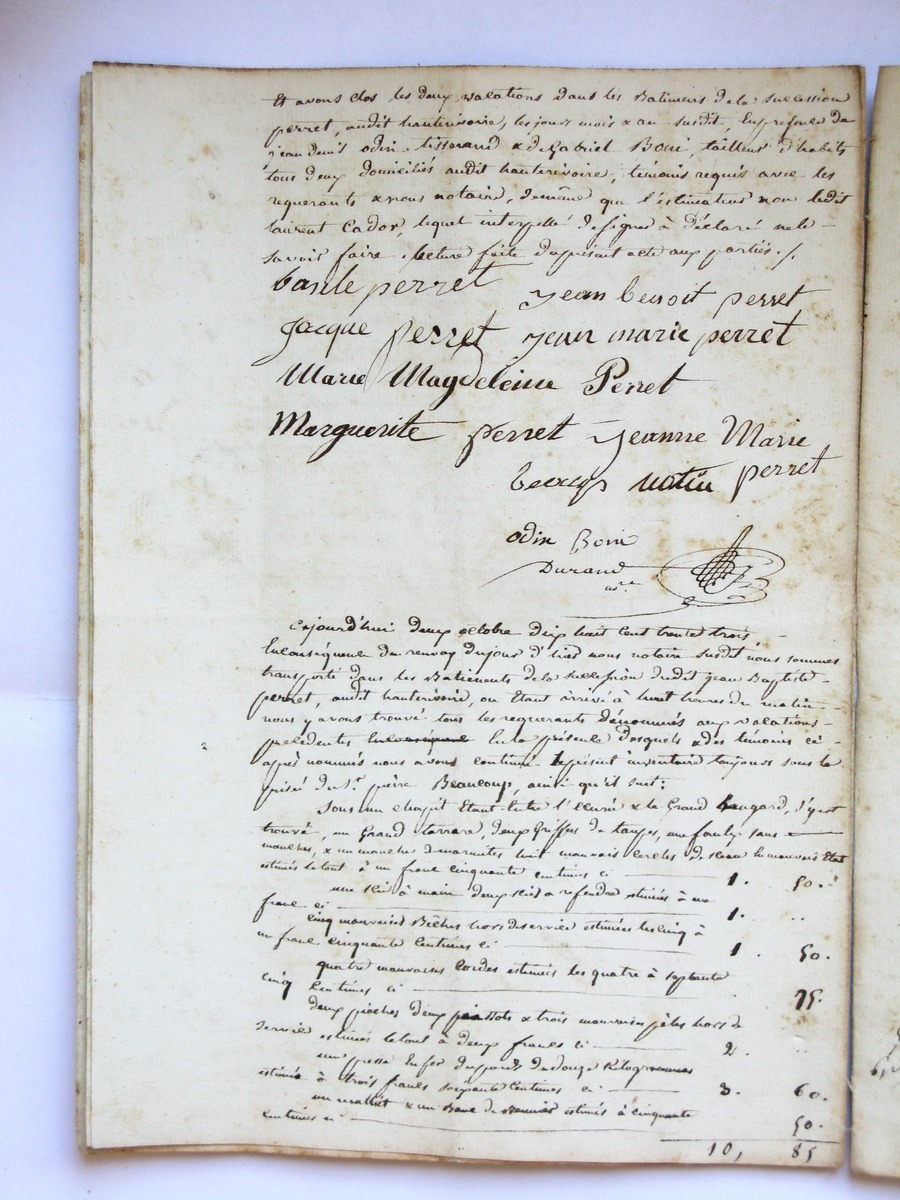 Et avons clos les deux vacations dans les Batimens de la succession
perret, audit hauterivoire, les jours mois & an susdit, En présence de
jean denis odin tisserand & de Gabriel Boni, tailleur d'habits
tous deux domiciliés audit hauterivoire, témoins requis avec les
requerants & nous notaire, de même que l'estimateur non ledit
laurent Cador, lequel interpellé de signer à déclaré ne le
savoir faire. lecture faite du présent acte aux parties ./.
perret jean benoit perret
Jacque perret jean marie perret
Marie Magdeleine Perret
Marguerite perret jeanne Marie
perret
odin Boni
Durand nore
Cejourd'hui deux octobre dix huit cent trente trois,
En conséquence du renvoy du jour d'hier nous notaire susdit nous sommes
transporté dans les Batiments de la succession dudit jean Baptiste
perret, audit hauterivoire, ou Etant arrivé à huit heures du matin
nous y avons trouvé tous les requerants dénommés aux vacations
précédentes En la présence desquels & des témoins ci
après nommés nous avons continué le présent inventaire toujours sous la
prisée du Sr. pierre Beaucoup, ainsi qu'il suit:
Sous un chapit Etant Entre l'Ecurie & le Grand hangard, s'Est
trouvé, un Grand tarrare, deux Griffes de une faulx sans
manches, & un manche de marmites huit mauvais cercles de En mauvais Etat
estimés le tout à un franc cinquante centimes ci 1. 50.
une Scie à main deux Scies a refendre estimées à un
franc ci 1. ..
Cinq mauvaises Bêches hors de service estimées les cinq à
un franc cinquante Centimes ci 1 50.
quatre mauvaises Cordes estimées les quatre à septante
cinq Centimes ci 75.
deux pioches deux piassots & trois mauvaises pèles hors de
service estimés le tout à deux francs ci 2. ..
un En fer du poids de douze Kilogrammes
estimée à trois francs soixante Centimes ci 3. 60.
un maillet & un Banc de estimés à cinquante
centimes ci 50.
10, 85